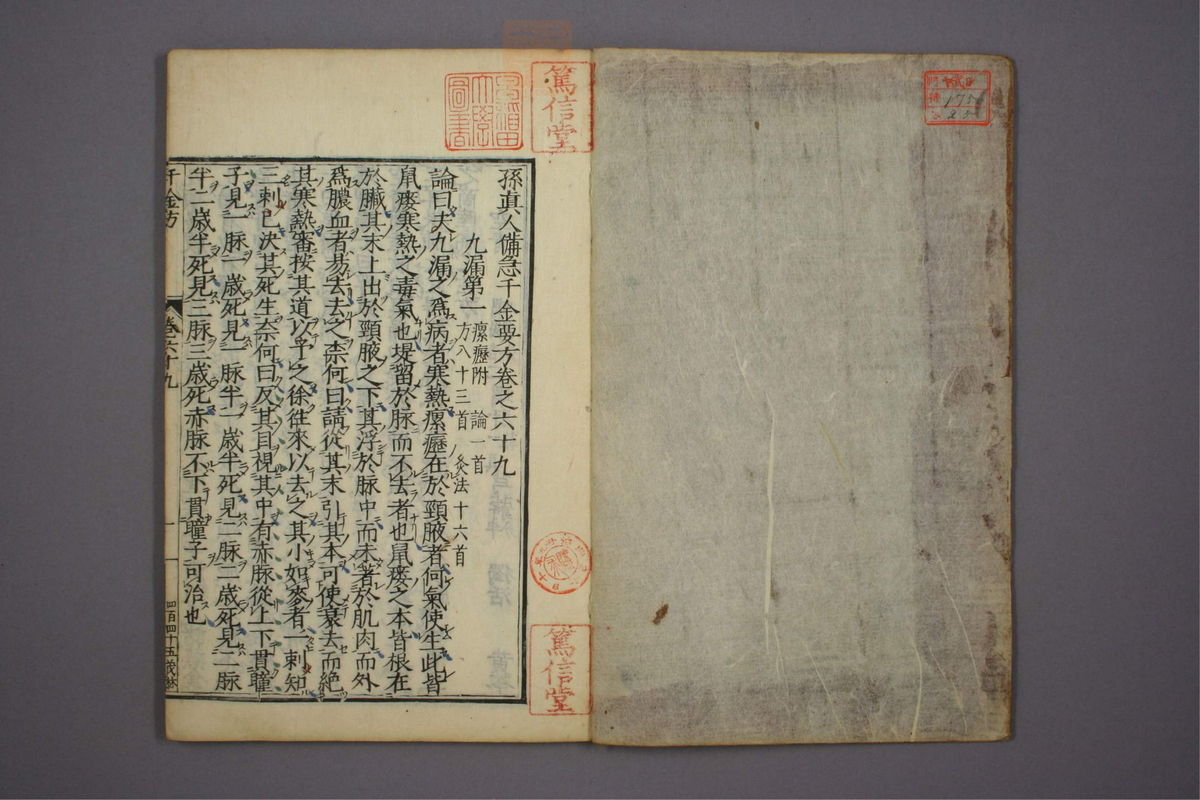 孫真人備急千金要方卷之六十九
九漏第一 瘰癧附 論一首
方八十三首 灸法十六首
論曰夫九漏之爲病者寒熱瘰癧在於頸腋者何氣使生此皆
鼠瘻寒熱之毒氣也堤留於脉而不去者也鼠瘻之本皆根在
於臓其末上出於頸腋之下其浮於脉中而未著於肌肉而外
爲膿血者易去去之柰何曰請從其末引其本可使衰去而絶
其寒熱審按其道以予之徐徃來以去之其小如麥者一刺知
三刺已決其死生奈何曰反其目視其中有赤脉從上下貫瞳
子見一脉一歳死見一脉半一歳半死見二脉二歳死見二脉
半二歳半死見三脉三歳死赤脉不下貫瞳子可治也
千金方 卷六十九 一 四百四十五
篤信堂
篤信堂
早稲田大學圖書